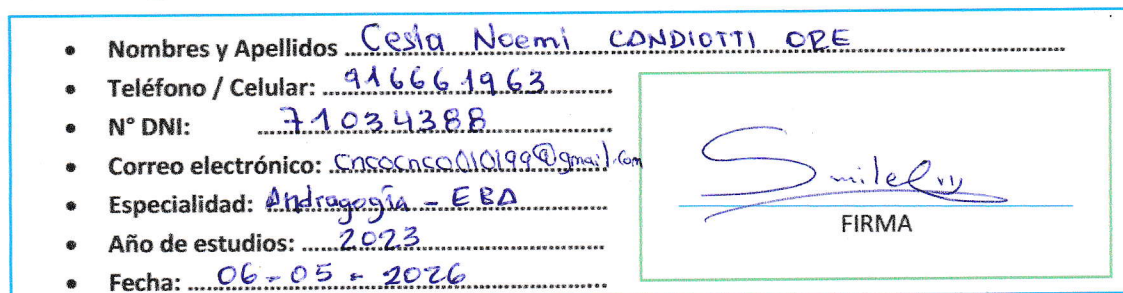 • Nombres y Apellidos Cesia Noemi CONDIOTTI ORE
• Teléfono / Celular: 916661963
• N° DNI: 71034388
• Correo electrónico: cnsocnsco010199@gmail.com
• Especialidad: Andragogía - EBA
• Año de estudios: 2023
• Fecha: 06-05-2026
FIRMA